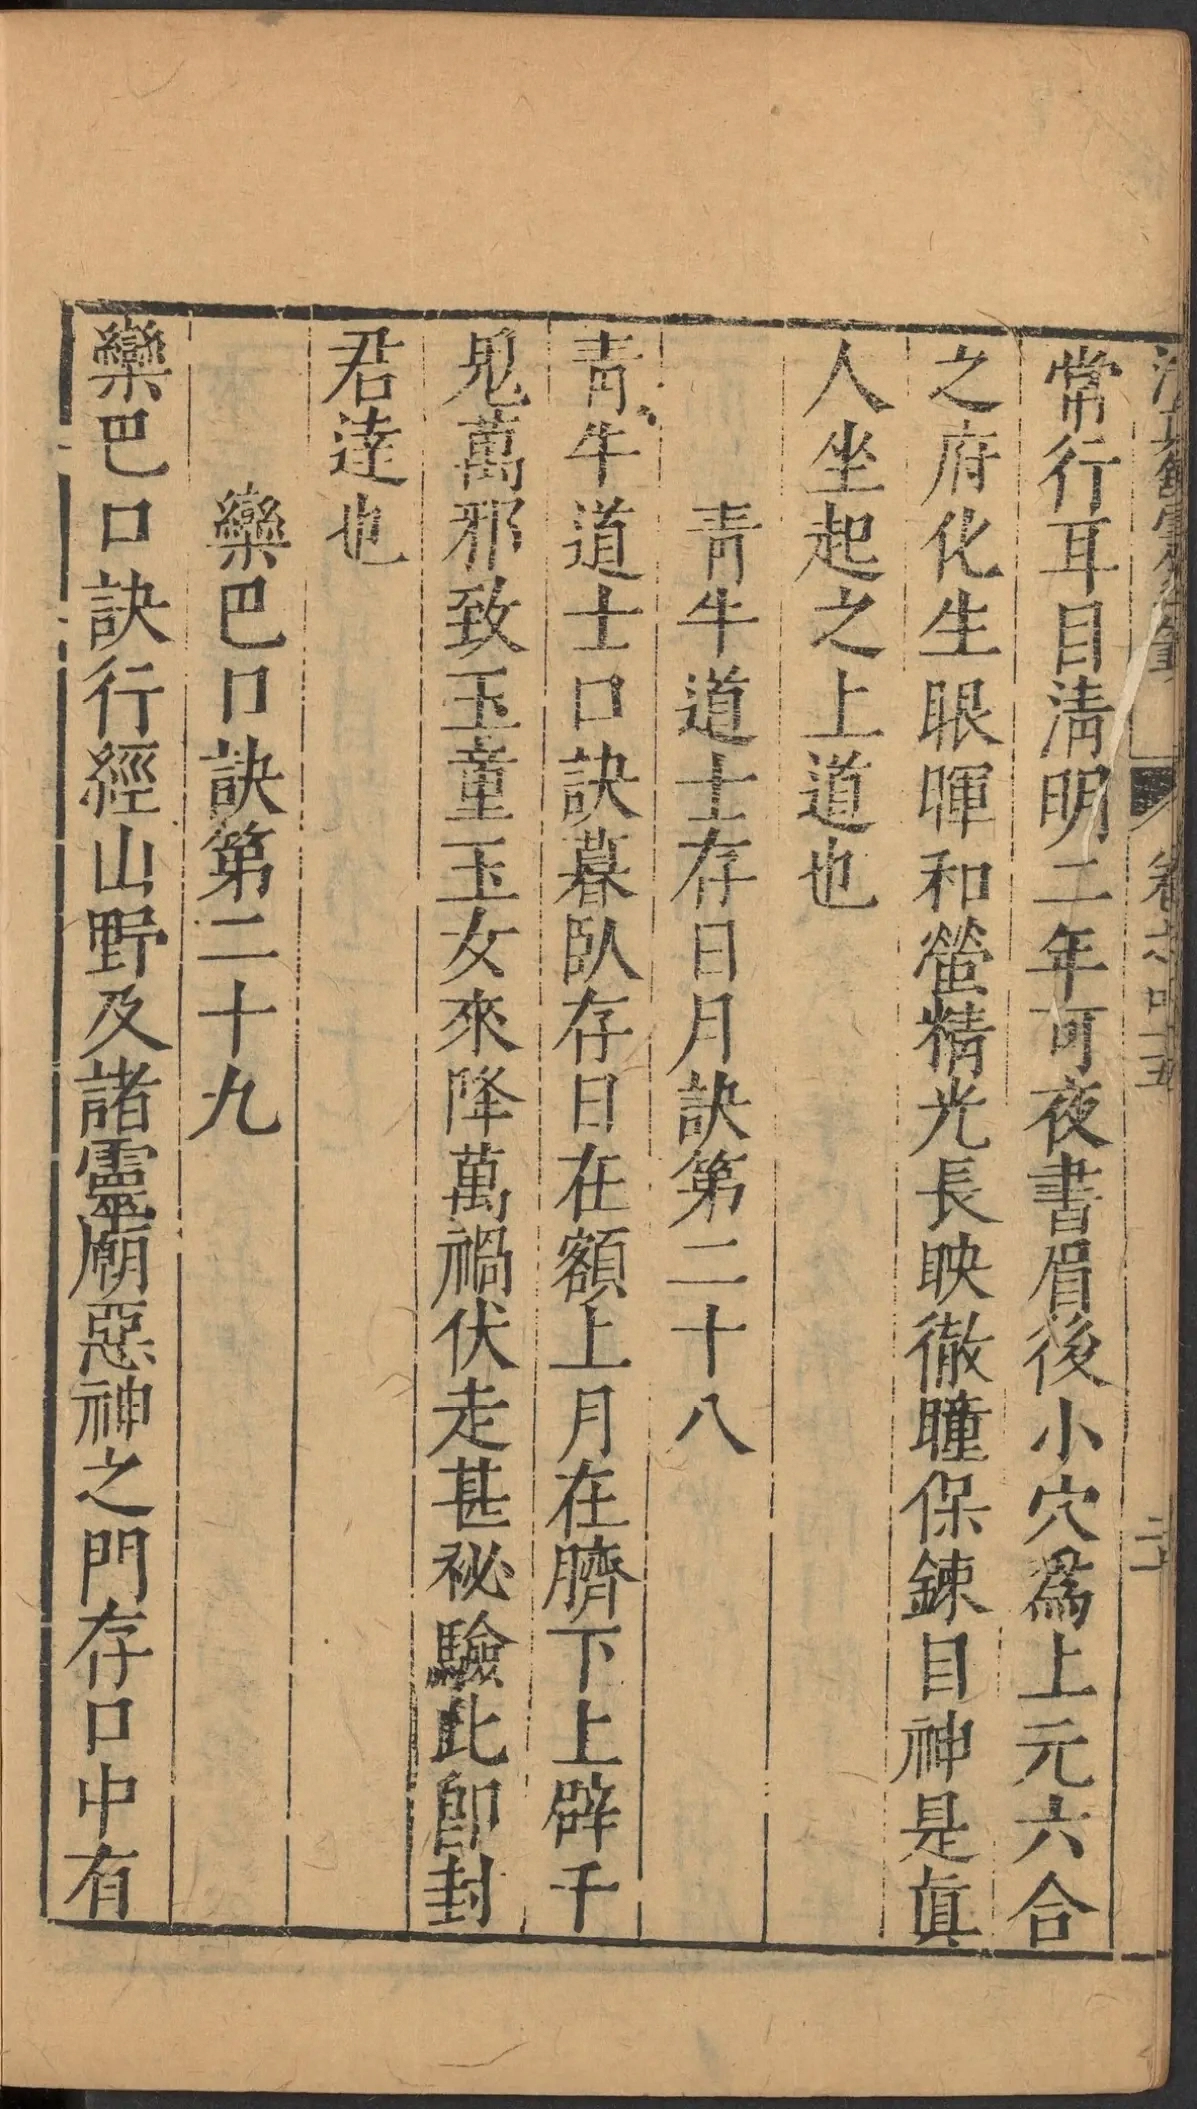 卷之四十五
常行耳目淸明二年可夜書眉後小穴爲上元六合
之府化生眼暉和螢精光長映徹瞳保鍊目神是眞
人坐起之上道也
靑牛道士存日月訣第二十八
靑牛道士口訣暮臥存日在額上月在臍下上辟千
鬼萬邪致玉童玉女來降萬禍伏走甚祕驗此卽封
君逹也
欒巴口訣第二十九
欒巴口訣行經山野及諸靈廟惡神之門存口中有